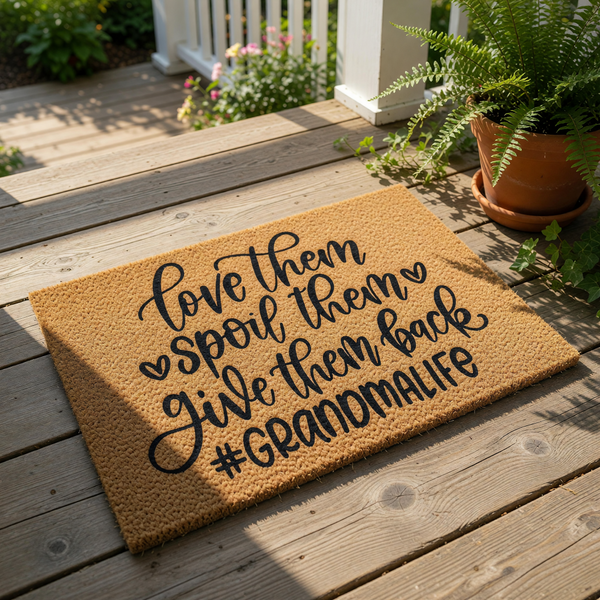 love them
spoil them
give them back
#GRANDMALIFE